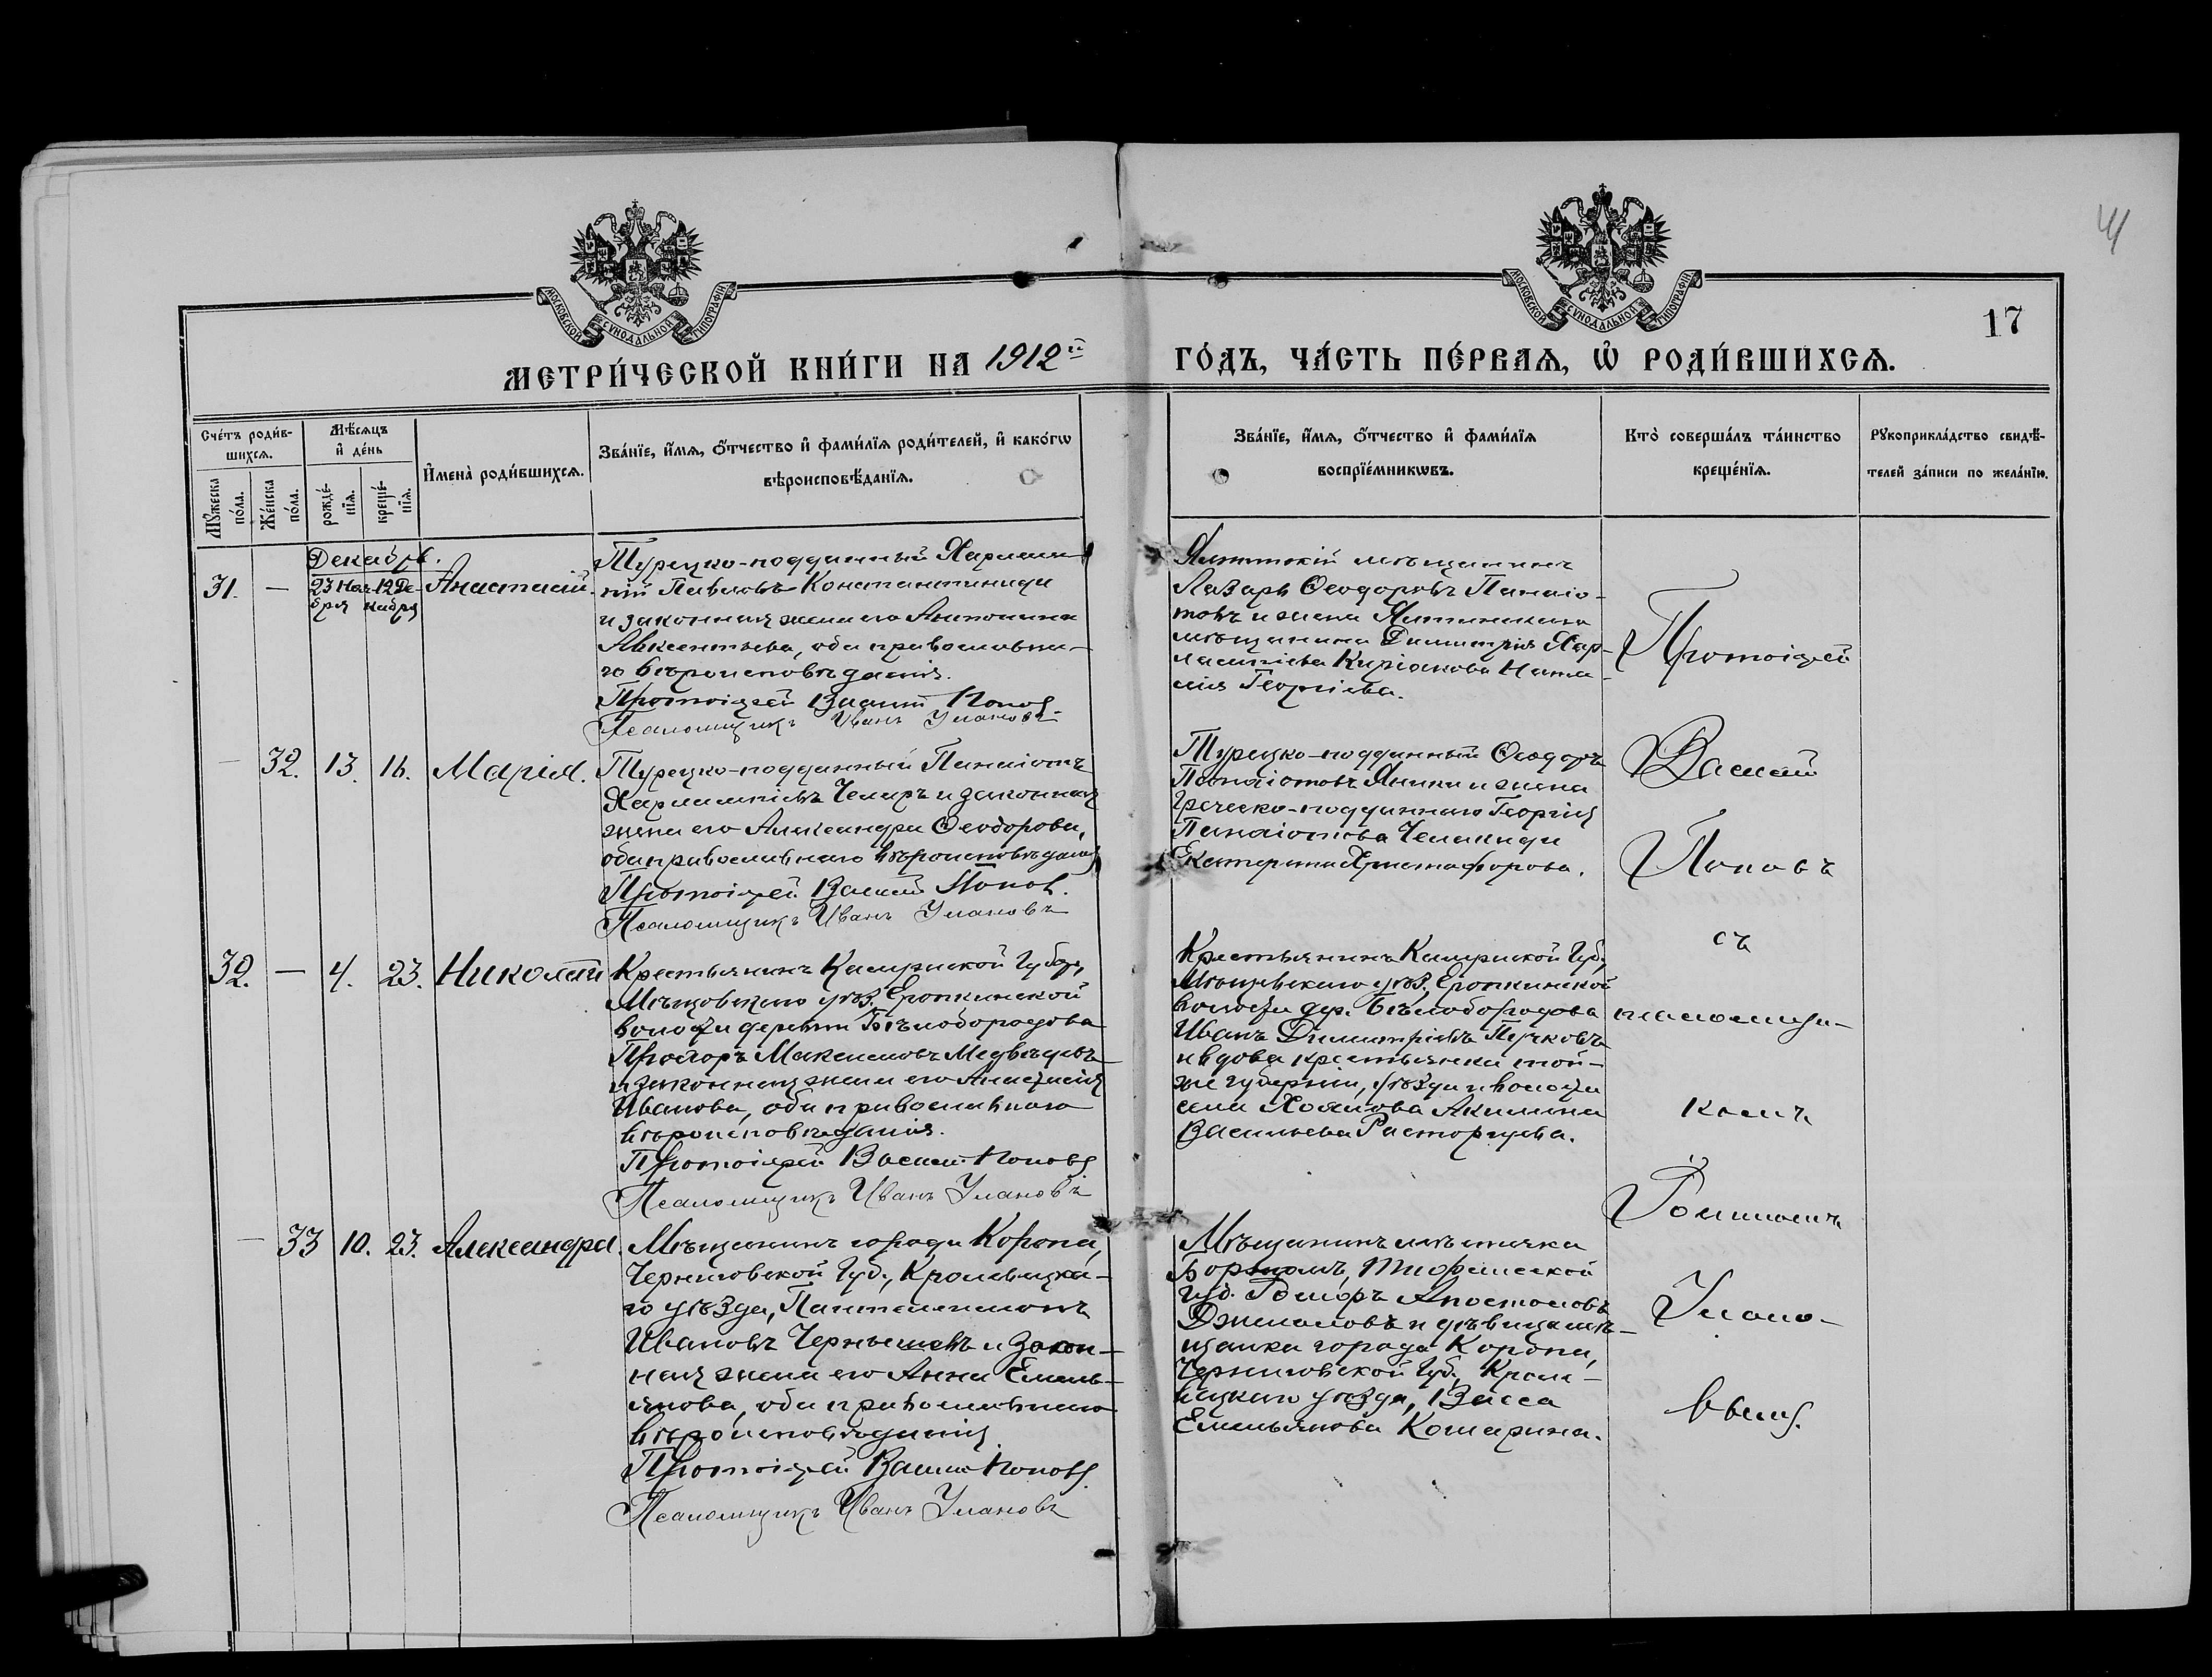 МОСКОВСКОЙ СУНОДАЛЬНОЙ ТИПОГРАФІИ
МОСКОВСКОЙ СУНОДАЛЬНОЙ ТИПОГРАФІИ
17
МЕТРИ́ЧЕСКОЙ КНИ́ГИ НА 1912й
ГО́ДЪ, ЧА́СТЬ ПЕ́РВАѦ, Ѡ҆ РОДИ́ВШИХСѦ.
Сче́тъ роди́в-
шихсѧ.
Мꙋ́жеска
по́ла.
Же́нска
по́ла.
Мѣ́сѧцъ
и҆ де́нь
рожде́-
нїѧ.
креще́-
нїѧ.
И҆мена̀ роди́вшихсѧ.
Зва́нїе, и҆́мѧ, ѻ҆́тчество и҆ фами́лїѧ роди́телей, и҆ како́гѡ
вѣроисповѣ́данїѧ.
Зва́нїе, и҆́мѧ, ѻ҆́тчество и҆ фами́лїѧ
воспрїе́мникѡвъ.
Кто̀ соверша́лъ та́инство
креще́нїѧ.
Рꙋкоприкла́дство свидѣ́-
телей за́писи по жела́нїю.
Декабрь.
31.
—
23 Ноя-
бря
12 Де-
кабря
Анастасій.
Турецко-подданный Харлам-
пій Павловъ Константиниди
и законная жена его Антонина
Авксентьева, оба православна-
го вѣроисповѣданія.
Протоіерей Василій Поповъ
Псаломщикъ Иванъ Улановъ
Ялтинскій мѣщанинъ
Лазарь Ѳеодоровъ Панаіо-
товъ и жена Ялтинскаго
мѣщанина Димитрія Хар-
лампіева Киріакова Ната-
лія Георгіева.
—
32.
13.
16.
Марія.
Турецко-подданный Панаіотъ
Харлампіевъ Чемиръ и законная
жена его Александра Ѳеодорова,
оба православнаго вѣроисповѣданія
Протоіерей Василій Поповъ.
Псаломщикъ Иванъ Улановъ
Турецко-подданный Ѳеодоръ
Панаіотовъ Яники и жена
Греческо-подданнаго Георгія
Панаіотова Челакиди
Екатерина Христофорова.
32.
—
4.
23.
Николай
Крестьянинъ Калужской Губер,
Мѣщовскаго уѣз. Еропкинской
волости деревни Бѣлобородова
Прохоръ Максимовъ Медвѣдевъ
и законная жена его Анастасія
Иванова, оба православнаго
вѣроисповѣданія.
Протоіерей Василій Поповъ
Псаломщикъ Иванъ Улановъ
Крестьянинъ Калужской Губ,
Мѣщовскаго уѣз. Еропкинской
волости дер. Бѣлобородова
Иванъ Димитріевъ Пучковъ
и вдова крестьянка той-
же губерніи, уѣзда и волости
села Хотякова Акилина
Васильева Расторгуева.
—
33
10.
23.
Александра.
Мѣщанинъ города Коропа,
Черниговской Губ., Кролевецка-
го уѣзда, Пантелеимонъ
Ивановъ Чернышевъ и закон-
ная жена его Анна Емель-
янова, оба православнаго
вѣроисповѣданія.
Протоіерей Василій Поповъ
Псаломщикъ Иванъ Улановъ
Мѣщанинъ мѣстечка
Боржомъ, Тифлисской
губ. Апостоловъ
Джиоловъ и дѣвица мѣ-
щанка города Коропа,
Черниговской Губ., Кроле-
вецкаго уѣзда, Васса
Емельянова Кошарина.
Протоіерей
Василій
Поповъ
съ
псаломщи-
комъ
Іоанномъ
Улано-
вымъ.